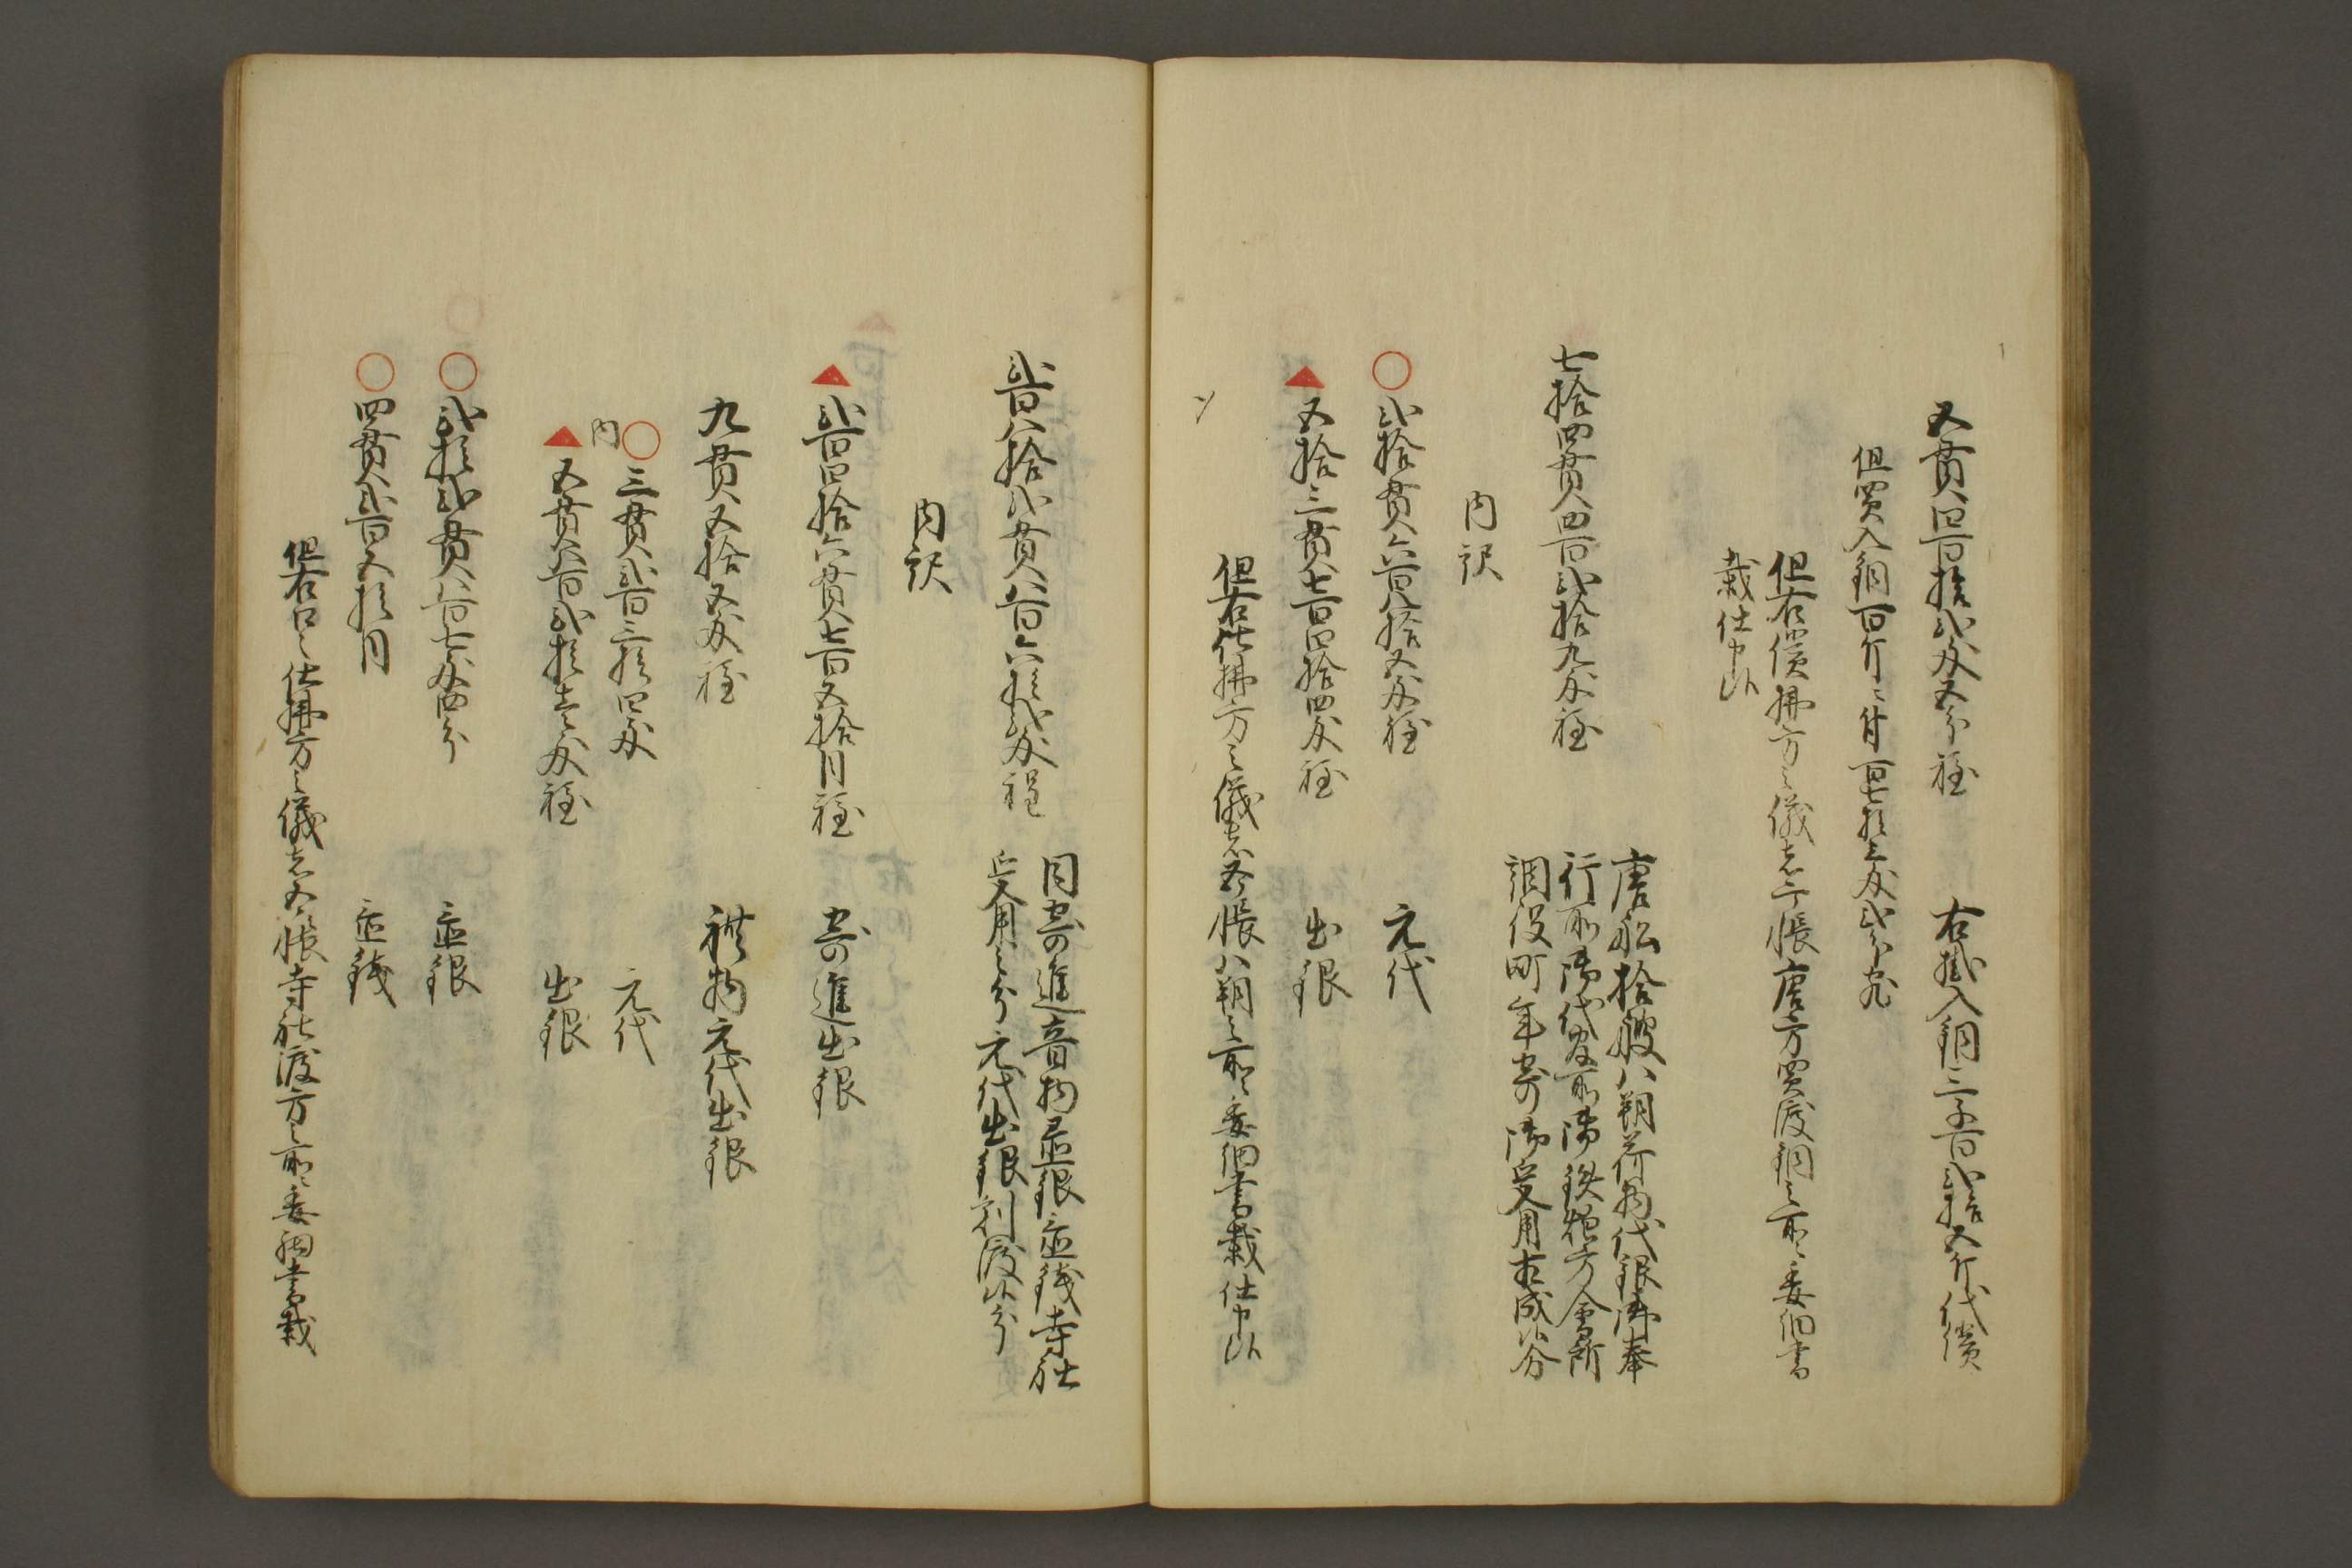 五貫四百拾弐匁五分程　右掛入銅三千百弐拾五斤代償
但買入銅百斤ニ付百七拾三匁弐分宛
但右償拂方之儀者亍帳唐方買渡銅之所ニ委細書
載仕申候
七拾四貫四百弐拾九匁程　唐船拾艘八朔荷物代銀御奉
行所御代官所御鉄炮方会所
調役町年寄御受用相成候分
内訳
○弐拾貫六百八拾五匁程　元代
▲五拾三貫七百四拾四匁程　出銀
但右仕拂方之儀者五番帳八朔之所ニ委細書載仕申候
弐百八拾弐貫八百六拾弐匁程　同寄進音物置銀置銭寺社
受用之分元代出銀割渡候分
内訳
▲弐百四拾六貫七百五拾目程　寄進出銀
九貫五拾五匁程　禮物元代出銀
内
○三貫弐百三拾四匁　元代
▲五貫八百弐拾壱匁程　出銀
○弐拾弐貫八百七匁四分　置銀
○四貫弐百五拾目　置銭
但右口々仕拂方之儀者五番帳寺社渡方之所ニ委細書載